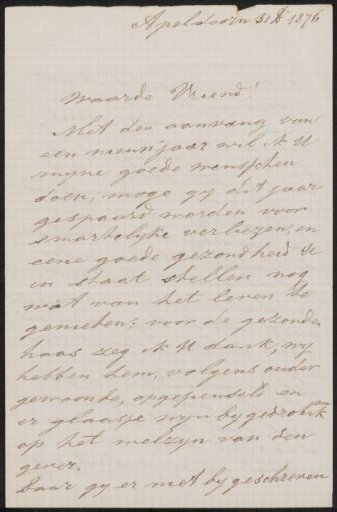 Apeldoorn 31 D 1876
Waarde Vriend!
Met den aanvang van
een nieuwjaar wil ik U
myne goede wenschen
doen, moge gy dit jaar
gespaard worden voor
smartelyke verliezen, en
eene goede gezondheid U
in staat stellen nog
wat van het leven te
genieten; voor de gezonden
haas zeg ik U dank, wy
hebben hem, volgens ouder
gewoonte, opgepeuseld en
er glaasje wyn by gedronken
op het welzyn van den
gever.
Daar gy er niet by geschreven